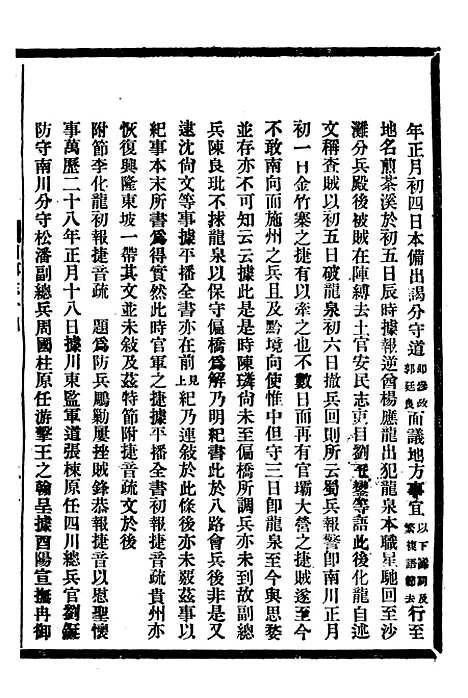 年正月初四日本備出謁分守道即參政郭廷良面議地方事宜以下歸詞及繁複語節去行至
地名煎茶溪於初五日辰時據報逆酋楊應龍出犯龍泉本職星馳回至沙
灘分兵殿後被賊在陣縛去土官安民志吏目劉玉鑾等語此後化龍自述
文稱查賊以初五日破龍泉初六日撤兵回則所云蜀兵報警即南川正月
初一日金竹寨之捷有以牽之也不數日而再有官壩大營之捷賊遂至今
不敢南向而施州之兵且及黔境向使惟中但守三日卽龍泉至今與思婺
並存亦不可知云云據此是是時陳璘尚未至偏橋所調兵亦未到故副總
兵陳良玭不捄龍泉以保守偏橋爲解乃明紀書此於八路會兵後非是又
逮沈尙文等事據平播全書亦在前見上紀乃連敘於此條後亦未覈茲事以
紀事本末所書爲得實然此時官軍之捷據平播全書初報捷音疏貴州亦
恢復興隆東坡一帶其文並未敍及茲特節附捷音疏文於後
附節李化龍初報捷音疏 題爲防兵鵰勦屢挫賊鋒恭報捷音以慰聖懷
事萬歷二十八年正月十八日據川東監軍道張棟原任四川總兵官劉綎
防守南川分守松潘副總兵周國柱原任游擊王之翰呈據酉陽宣撫冉御